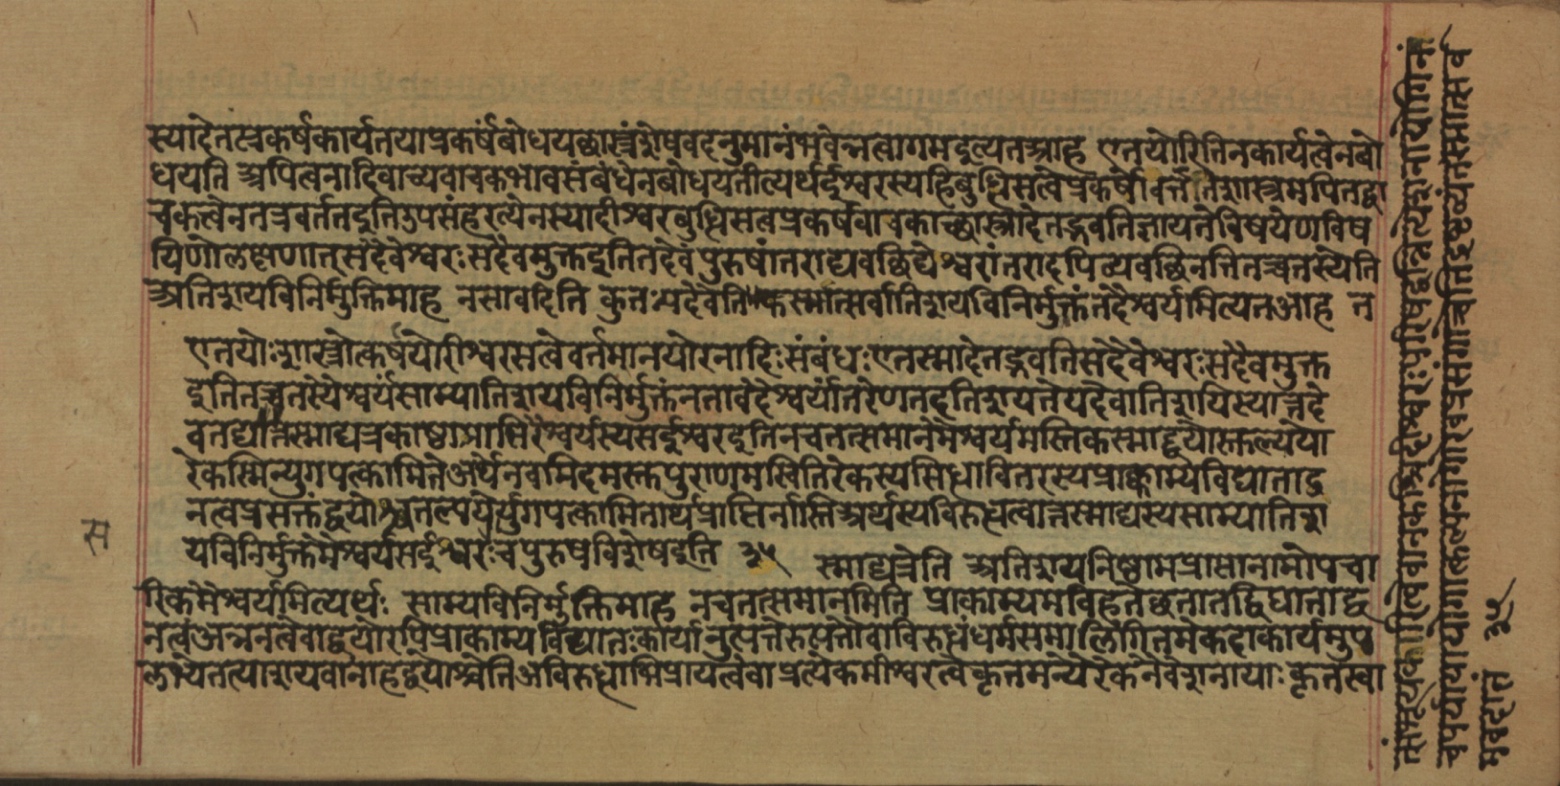 स्यादेतत्प्रकर्षकार्यतयाप्रकर्षंबोधयछास्त्रंशेषवदनुमानंभवेन्नत्वागमइत्यतआह एतयोरितिनकार्यत्वेनबो
धयति अपित्वनादिवाच्यवाचकभावसंबंधेनबोधयतीत्यर्थईश्वरस्यहिबुद्धिसत्वेप्रकर्षोवर्त्ततेशास्त्रमपितद्वा
चकत्वेनतत्रवर्ततइतिउपसंहरत्येतस्यादीश्वरबुद्धिसत्वप्रकर्षवाचकाच्छास्त्रादेतद्भवतिज्ञायतेविषयेणविष
यिणोलक्षणात्सदैवेश्वरःसदैवमुक्तइतितदेवंपुरुषांतराद्यवछिद्येश्वरांतरादपिव्यवछिनत्तितच्चतस्येति
अतिशयविनिर्मुक्तिमाह नतावदिति कुतःयदेवेति कस्मात्सर्वातिशयविनिर्मुक्तंतदैश्वर्यमित्यतआह त
एतयोःशास्त्रोत्कर्षयोरीश्वरसत्वेवर्तमानयोरनादिःसंबंधःएतस्मादेतद्भवतिसदैवेश्वरःसदैवमुक्त
इतितच्चतस्येश्वर्यंसाम्यातिशयविनिर्मुक्तंनतावदैश्वर्यांतरेणतदतिशयतेयदेवातिशयिस्यात्तदे
वतद्यात्तस्माद्यत्रकाष्ठाप्राप्तिरैश्वर्यस्यसईश्वरइतिनचतत्समानमैश्वर्यमस्तिकस्माद्द्वयोस्तुल्ययो
रेकस्मिन्युगपत्कामितेअर्थेनवमिदमस्तुपुराणमस्त्वितिरेकस्यसिद्धावितरस्यप्राकाम्येविघाताद्
नत्वंप्रसक्तंद्वयोश्चतुल्ययोर्युगपत्कामितार्थप्राप्तिर्नास्तिअर्थस्यविरुद्धत्वात्तस्माद्यस्यसाम्यातिश
यविनिर्मुक्तमैश्वर्यंसईश्वरःचपुरुषविशेषइति ३५ स्माद्यत्रेति अतिशयनिष्ठामप्राप्तानामौपचा
रिकमैश्वर्यमित्यर्थः साम्यविनिर्मुक्तिमाह नचतत्समानमिति प्राकाम्यमविहतेछतातद्विघाताद्
नत्वंअन्यूनत्वेवाद्वयोरपिप्राकाम्यविघातःकार्यानुत्पत्तेरुत्पत्तौवाविरुद्धधर्मसमालिंगितमेकदाकार्यमुप
लभ्येतत्याशयवानाहद्वयोश्चेतिअविरुद्धाभिप्रायत्वेवाप्रत्येकमीश्वरत्वेकृतमन्यैरेकेनैवेशनायाः कृतत्वा
स